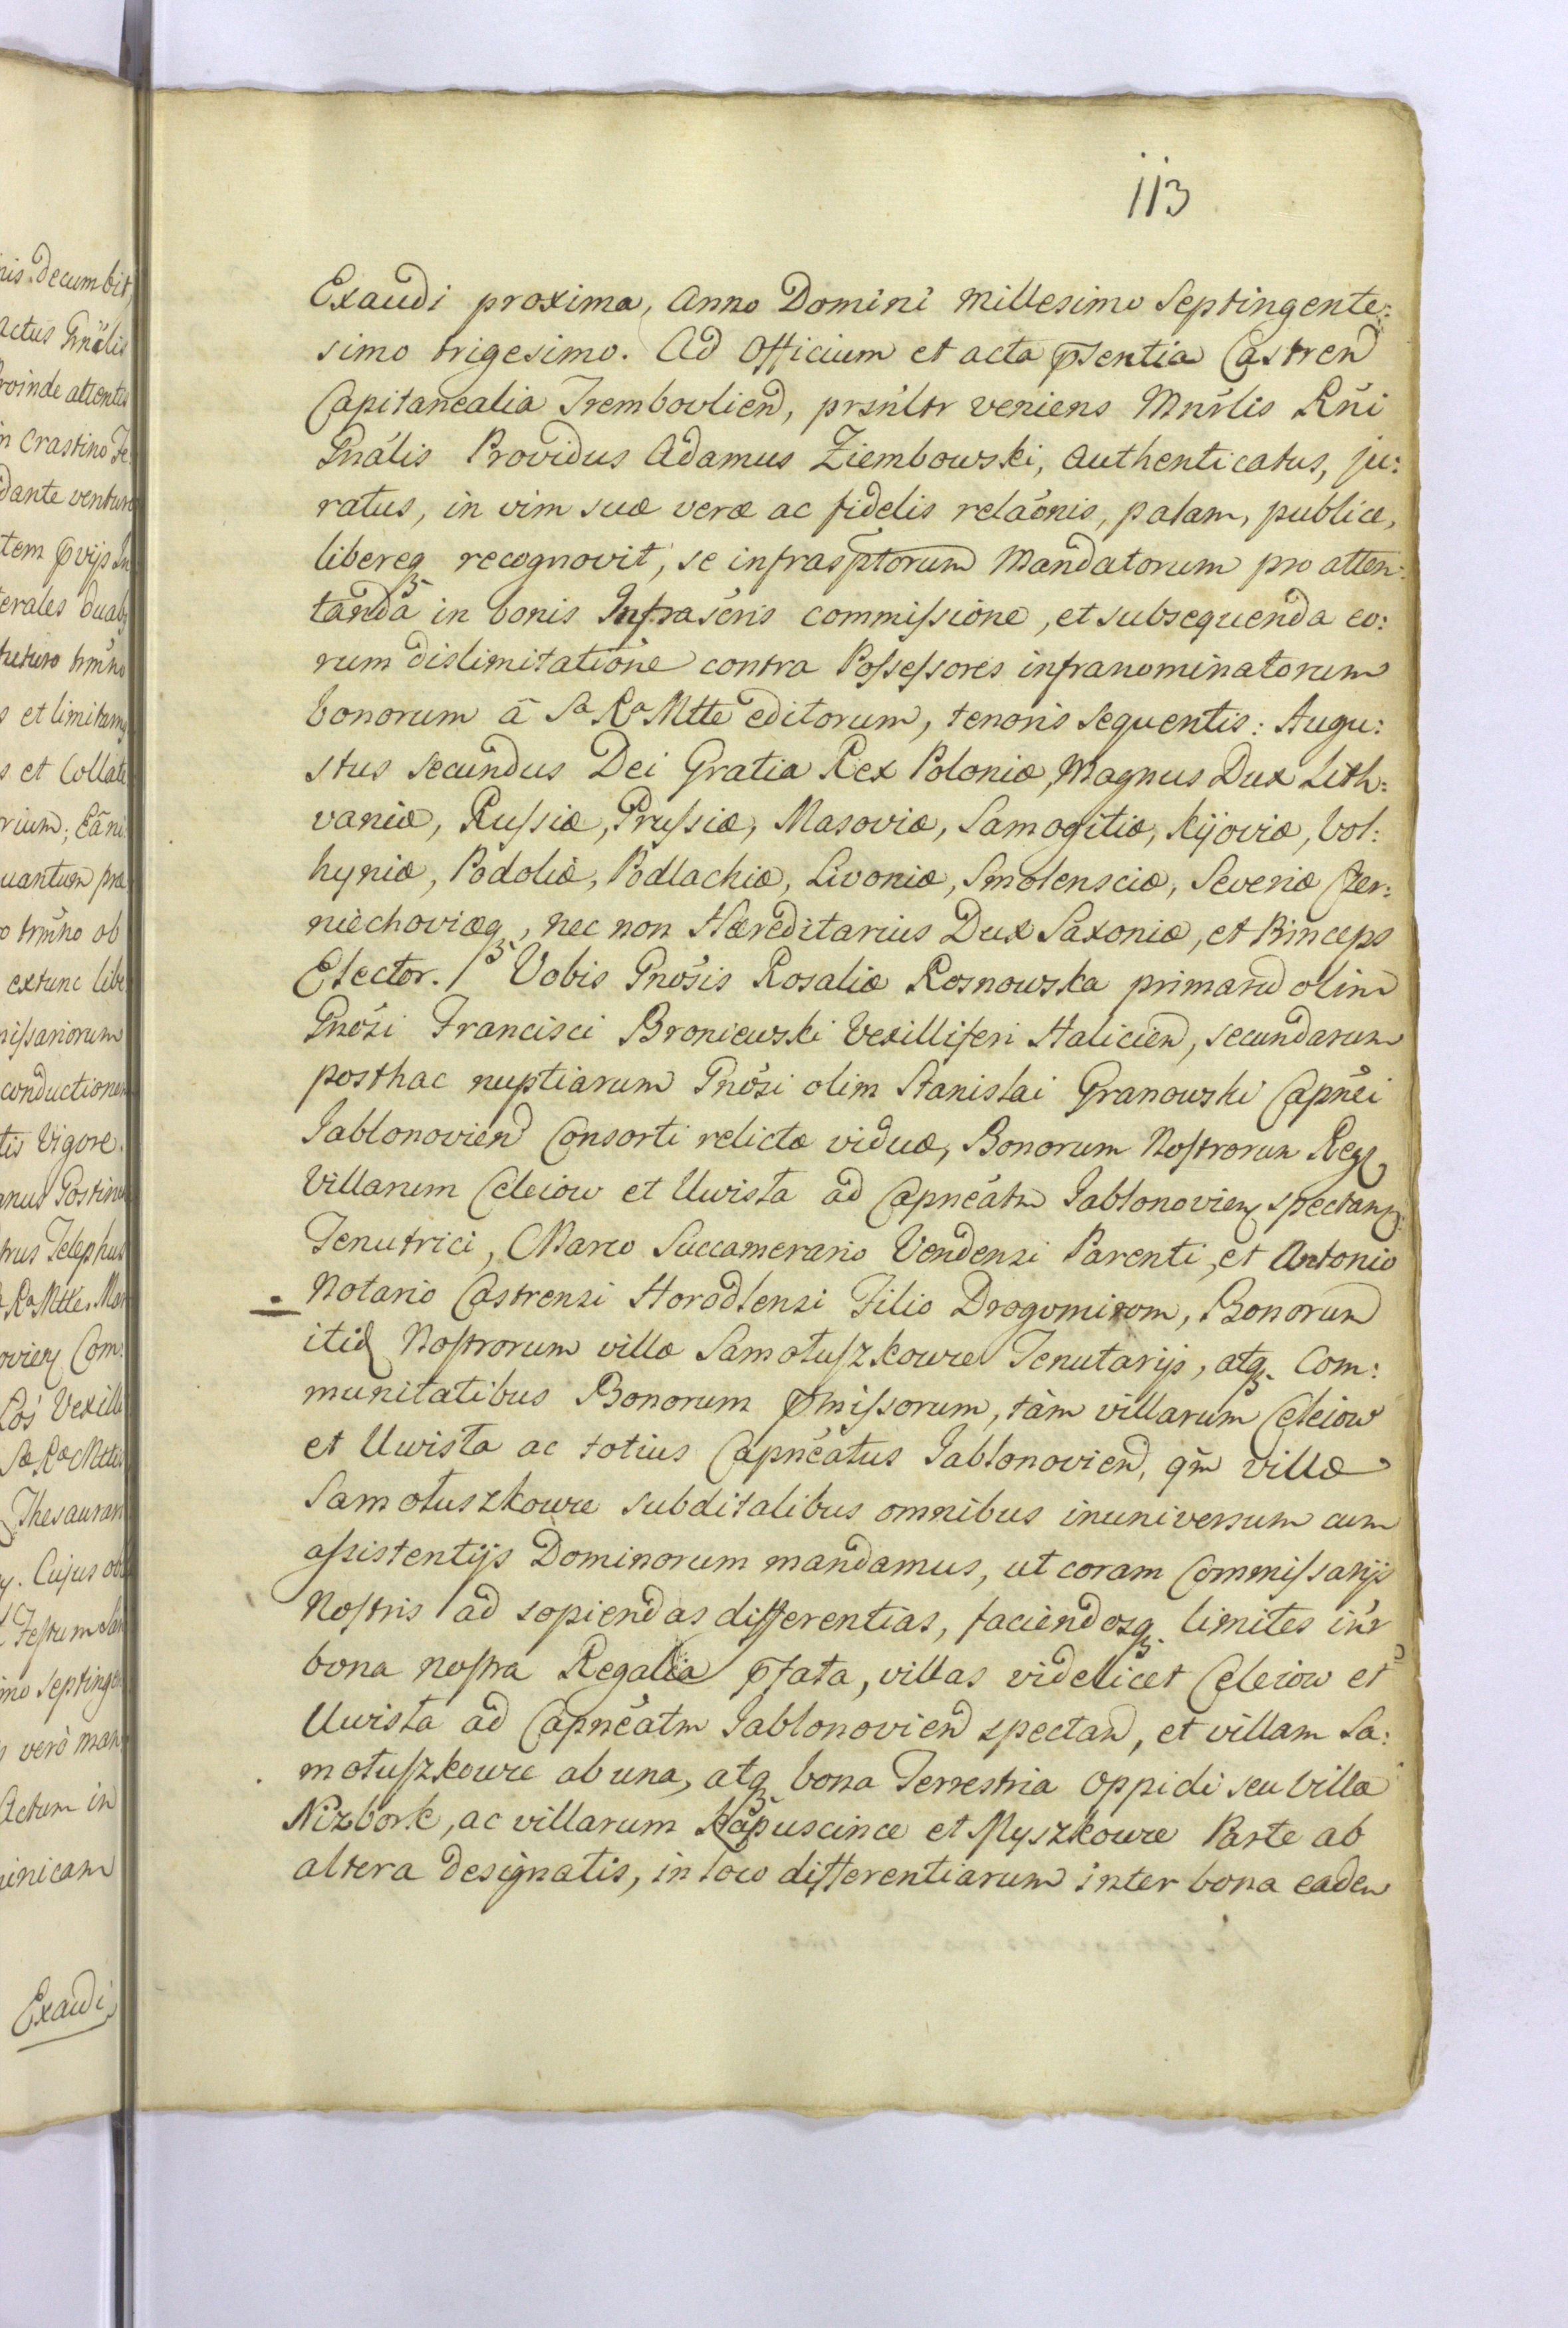 113
Exaudi proxima, Anno Domini Millesimo Septingente:
simo trigesimo. Ad Officium et acta p̄sentia Castren̄
Capitanealia Trembovlien̄, prsn̄ltr veniens Mn̄rlis Rn̄i
Gnālis Providus Adamus Ziembowski, Authenticatus, ju:
ratus, in vim suæ veræ ac fidelis relaōnis, palam, publice,
libereq₃ recognovit, se infrasp̄torum Mandatorum pro atten:
tanda in bonis Infrascris commissione, et subsequenda eo:
rum dislimitatione contra Possessores infranominatorum
bonorum â Sa Ra Mtte editorum, tenoris sequentis: Augu:
stus Secundus Dei Gratia Rex Poloniæ, Magnus Dux Lith:
vaniæ, Russiæ, Prussiæ, Masoviæ, Samogitiæ, Kijoviæ, Vol:
hyniæ, Podoliæ, Podlachiæ, Livoniæ, Smolensciæ, Severiæ Czer:
niechoviæq₃, nec non Hæreditarius Dux Saxoniæ, et Princeps
Elector. / Vobis Gnōsis Rosaliæ Rosnowska primarū olim
Gnōsi Francisci Broniewski Vexilliferi Halicien̄, secundarum
posthac nuptiarum Gnōsi olim Stanislai Granowski Capnēi
Jablonovien̄ Consorti relictæ viduæ, Bonorum Nostrorum Regꝭ
Villarum Celeiow et Uwisla ad Capnēatm Jablonovienꝭ spectanꝭ
Tenutrici, Marco Succamerario Vendensi Parenti, et Antonio
Notario Castrensi Horodlensi Filio Drogomirom, Bonorum
itid̄ Nostrorum villæ Samoluszkowce Tenutarijs, atq₃ Com:
munitatibus Bonorum p̄missorum, tàm villarum Celeiow
et Uwisla ac totius Capnēatus Jablonovien̄, qm̄ villæ
Samoluszkowce subditalibus omnibus inuniversum cum
assistentijs Dominorum mandamus, ut coram Commissarijs
Nostris ad sopiendas differentias, faciendosq₃ limites in̄r
bona nostra Regalia p̄fata, villas videlicet Celeiow et
Uwisla ad Capnēatm Jablonovien̄ spectan̄, et villam Sa:
moluszkowce ab una, atq₃ bona Terrestria Oppidi seu Villa
Nizbork, ac villarum Kapuscince et Myszkowce Parte ab
altera designatis, in loco differentiarum inter bona eadem
nis decumbit,
actus Gnālis
proinde attentis
in crastino Fe
dante venturo
tem p̄vijs In
erales duab₃
futuro trm̄no
s et limitam
s et Collate
rium; Eāni
uantum præ
o trm̄no ob
extunc libe
missariorum
conductionem
tis Vigore.
Ra Mtte. Man
ovienꝭ Com:
Vexilli
Thesaurari
. Cujus
Festum
imo septingen
s verò man
Actum in
inicam
Exaudi